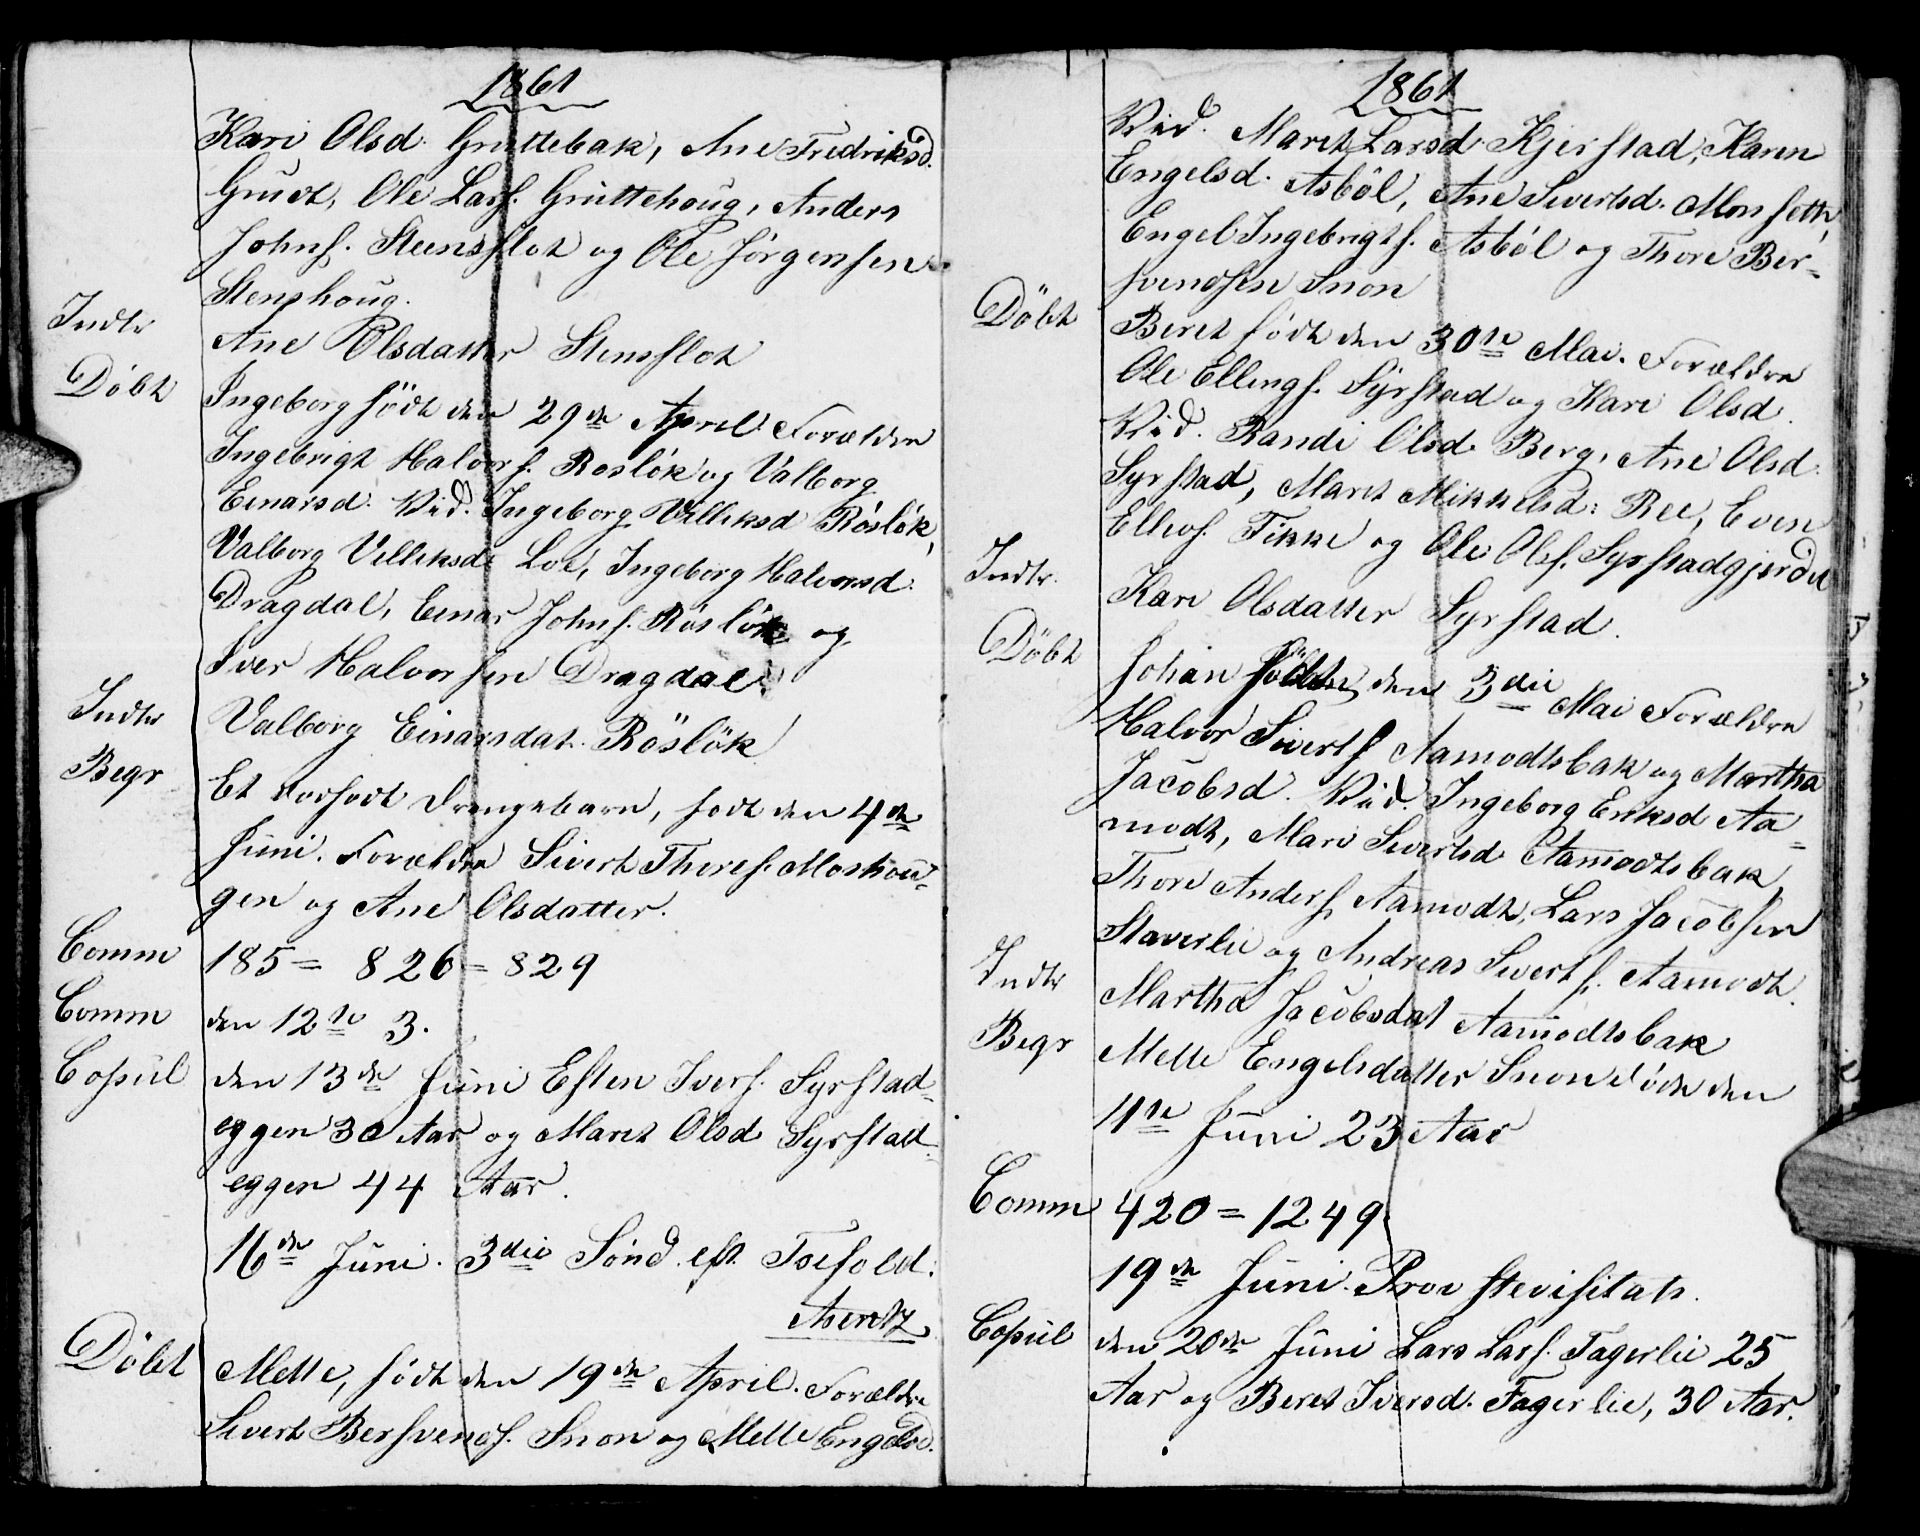 1861
Kari Olsd. Gruttebak, Ane Fredriksd.
Grudt, Ole Larsf. Gruttehoug, Anders
Johnf. Steensflot og Ole Jörgensen
Stenshoug.
Indtr Ane Olsdatter Stensflot
Döbt Ingeborg födt den 29de April Forældre
Ingebrigt Halvorf. Roslök og Valborg
Einarsd. Vid. Ingeborg Villiksd Röslök,
Valborg Villiksd: Loe, Ingeborg Halvorsd:
Dragdal, Einar Johnf. Röslök og
Iver Halvorsen Dragdal.
Indtr Valborg Einarsdat. Röslök
Begr Et dödfödt Drengebarn, födt den 4de
Juni. Forældre Sivert Thoresf. Moshou-
gen og Ane Olsdatter.
Comm 185 = 826 = 829
Comm den 12te 3.
Copul den 13de Juni Esten Iversf. Syrstad-
eggen 30 Aar og Maret Olsd Syrstad-
eggen 44 Aar.
16de Juni. 3die Sönd. eft. Trefold:

Döbt Mette, födt den 19de April. Forældre
Sivert Bersvendf. Snon og Mette Engelsd.
1861
Vid. Maret Larsd. Kjerstad, Karen
Engelsd. Asböl, Ane Sivertsd. Monseth,
Engel Ingebrigtf. Asböl og Thore Ber-
svendsen Snon
Döbt Beret födt den 30te Mai. Forældre
Ole Ellingf. Syrstad og Kari Olsd.
Vid. Randi Olsd. Berg, Ane Olsd.
Syrstad, Maret Mikkelsd: Ree, Even
Ellevf. Fikke og Ole Olsf. Syrstadgjerdet
Indtr. Kari Olsdatter Syrstad.
Döbt Johan födt den 3die Mai Forældre
Halvor Sivertsf Aamodtsbak og Martha
Jacobsd. Vid. Ingeborg Eriksd Aa-
modt, Mari Sivertsd Aamodtsbak,
Thore Andersf Aamodt, Lars Jacobsen
Staverlie og Andreas Sivertsf. Aamodt.
Indtr Martha Jacobsdat Aamodtsbak
Begr Mette Engelsdatter Snon döde den
11te Juni 23 Aar
Comm 420 = 1249
19de Juni. Provstevisitats.
Copul den 20de Juni Lars Larsf. Fagerlie 25
Aar og Beret Iversd. Fagerlie, 30 Aar.